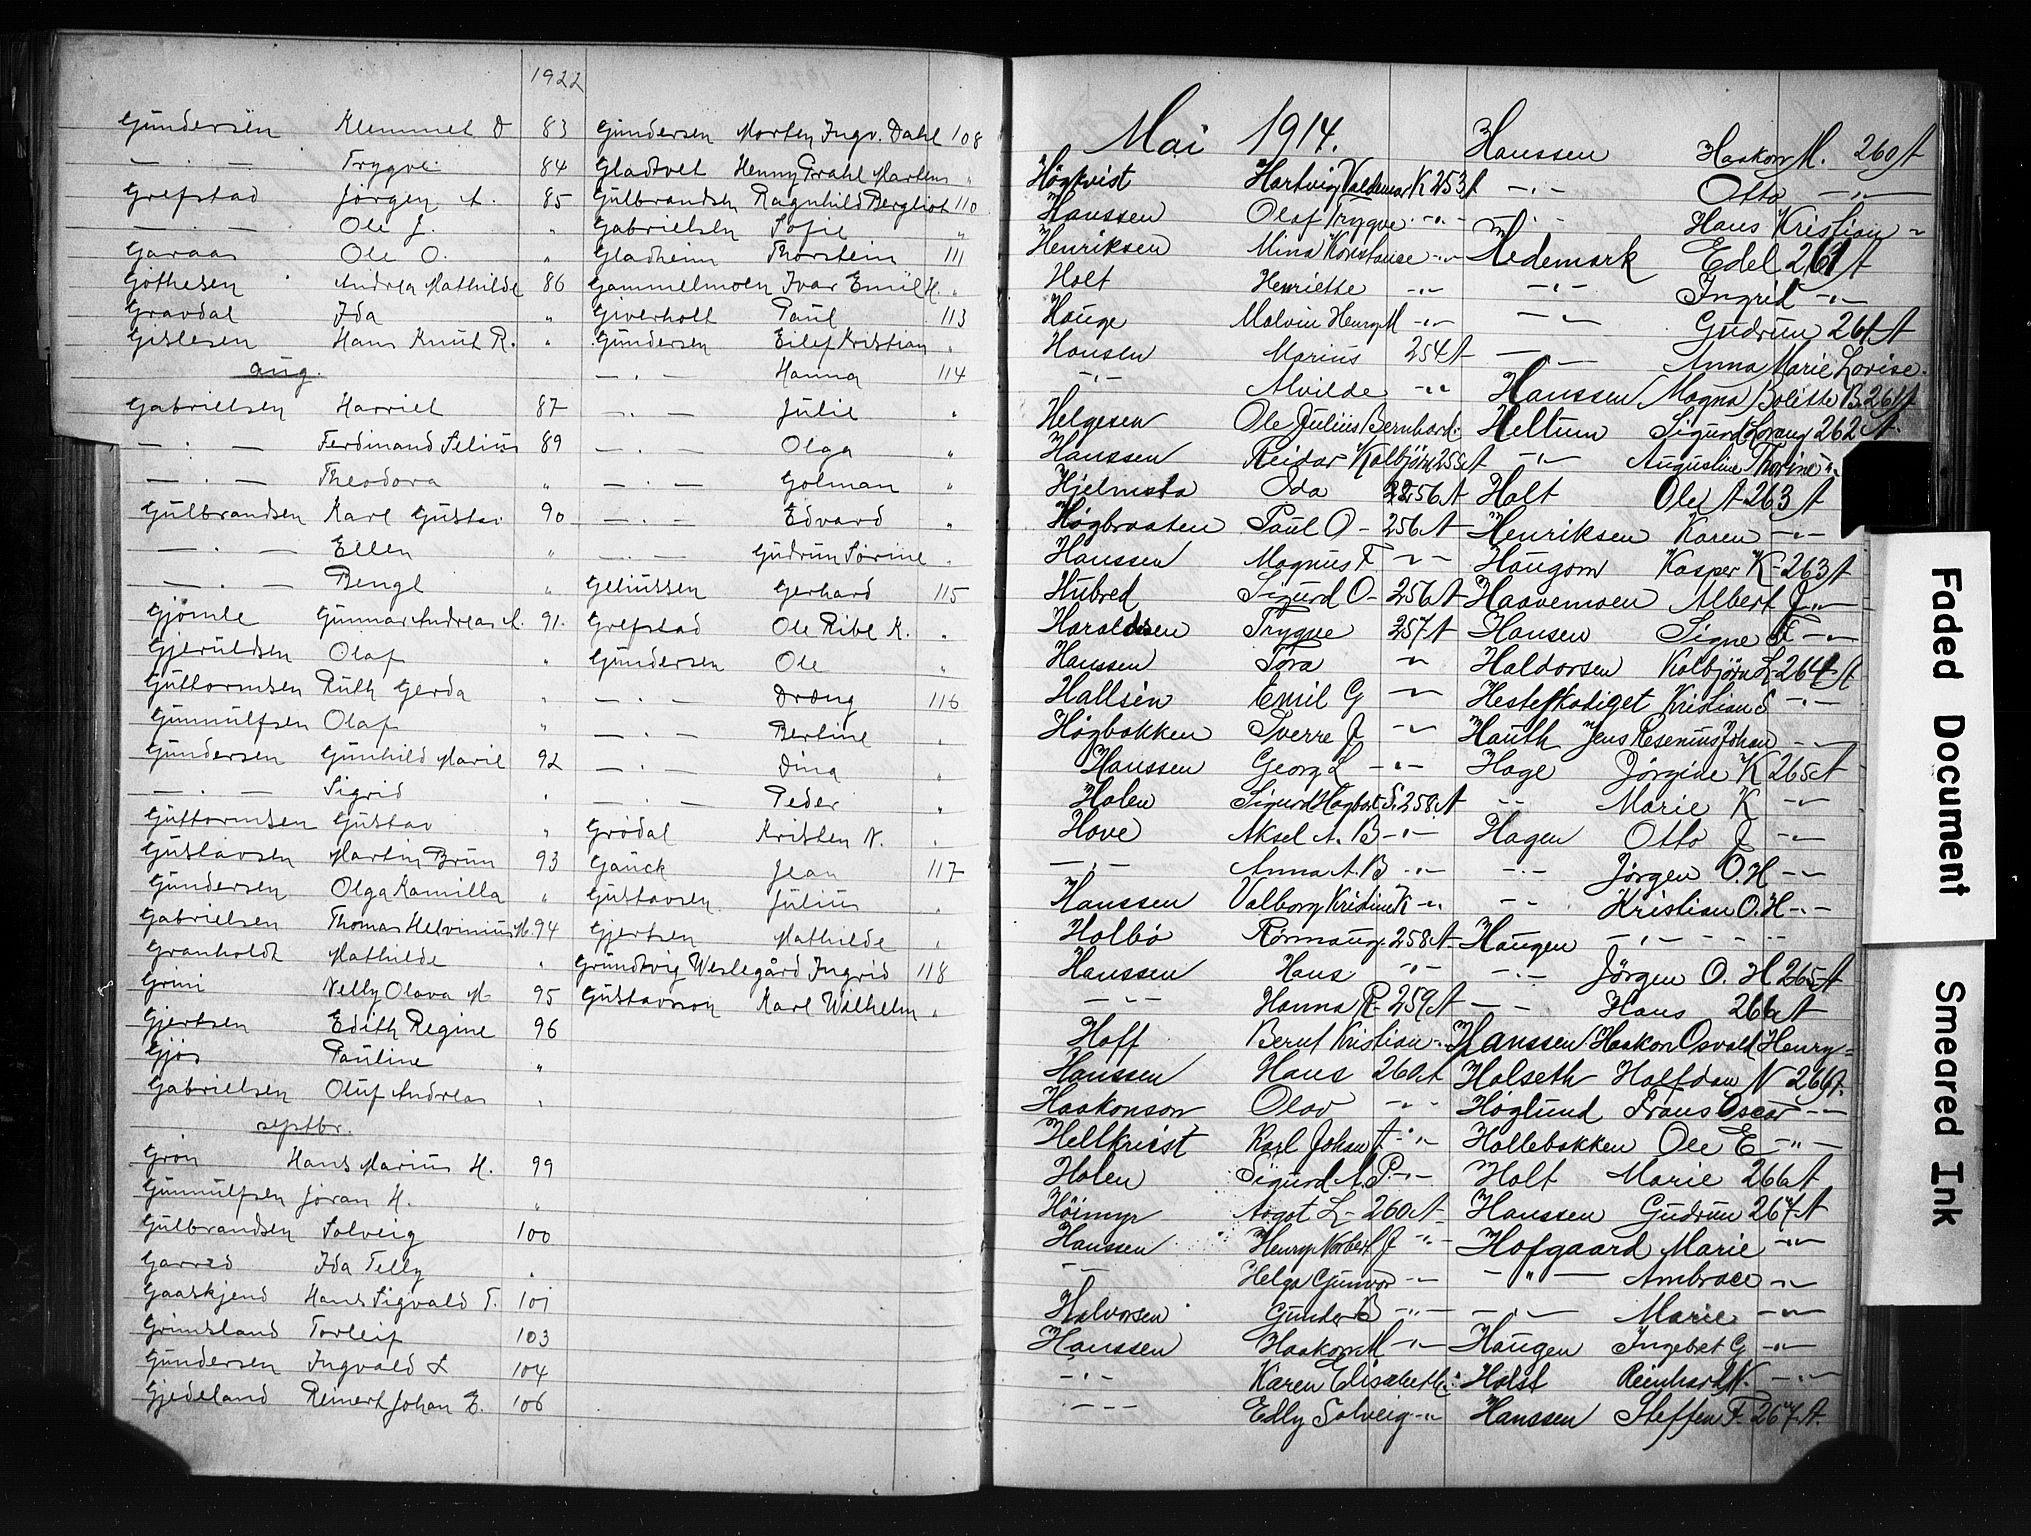 1922
Gundersen Klemmet D 83
— . — Trygve 84
Grefstad Jørgen A. 85
— — Ole J. "
Garaas Ole O. "
Gothesen Andrea Mathilde 86
Gravdal Ida "
Gislesen Hans Knut R. "
aug.
Gabrielsen Harriet 87
— . — Ferdinand Selius 89
— . — Theodora "
Gulbrandsen Karl Gustav 90
— . — Ellen "
— . — Bengt "
Gjømle Gunnar Andreas A. 91.
Gjeruldsen Olaf "
Guttormsen Ruth Gerda "
Gunnulfsen Olaf "
Gundersen Gunhild Marie 92
— . — Sigrid "
Guttormsen Gustav "
Gustavsen Martin Brun 93
Gundersen Olga Kamilla "
Gabrielsen Thomas Helvinius M. 94
Granholdt Mathilde "
Grini Nelly Olava M 95
Gjertsen Edith Regine 96
Gjøs Pauline "
Gabrielsen Oluf Andreas "
septbr.
Grøn Hans Marius H. 99
Gunnulfsen Jøran H. "
Gulbrandsen Solveig 100
Garred Ida Telly "
Gaaskjend Hans Sigvald T. 101
Grimsland Torleif 103
Gundersen Ingvald L 104
Gjedeland Reinert Johan E. 106
Gundersen Morten Ingv. Dahl 108
Gladtvet Henny Prahl Martens "
Gulbrandsen Ragnhild Bergliot 110
Gabrielsen Sofie "
Gladheim Thorstein 111
Gammelmoen Ivar Emil H. "
Giverholt Paul 113
Gundersen Eilef Kristian "
— . — Hanna 114
— . — Julie "
— . — Olga "
— . — Golman "
— . — Edvard "
— . — Gudrun Sørine "
Geliussen Gerhard 115
Grefstad Ole Ribe K. "
Gundersen Ole "
— . — Dræng 116
— . — Berline "
— . — Dina "
— . — Peder "
Grødal Kristen N. "
Gauck Jean 117
Gustavsen Julius "
Gjertsen Mathilde "
Grundtvig Weslegård Ingrid 118
Gustavson Karl Wilhelm "
Mai 1914.
Høgkvist Hartvig Valdemar K 253 A
Hanssen Olaf Trygve -"-
Henriksen Mina Konstanse -"-
Holt Henriette -"-
Hauge Malvin Henry M -"-
Hansen Marius 254 A
-"- Alvilde -"-
Helgesen Ole Julius Bernhard
Hanssen Reidar Kolbjørn 255 A
Hjelmsta Oda 256 A
Høgbraaten Paul O - 256 A
Hanssen Magnus F -"-
Hubred Sigurd O - 256 A
Haraldsen Trygve 257 A
Hanssen Tora -"-
Hallsén Emil G -"-
Høgbakken Sverre J -"-
Hanssen Georg L -"-
Holen Sigurd Hagbart S. 258 A
Hove Aksel A. B -"-
-"- Anna A. B -"-
Hanssen Valborg Kristine K -"-
Holbø 258 A
Hanssen Hans -"-
-"- Hanna R - 259 A
Hoff Bernt Kristian -"-
Hanssen Hans 260 A
Haakonson Olav -"-
Hellkvist Karl Johan A -"-
Holen Sigurd A. P -"-
Høimyr Aagot L - 260 A
Hanssen Henry Norbert J -"-
-"- Helga Gunvor -"-
Halvorsen Gunder B -"-
Hanssen Haakon M -"-
-"- Karen Elisabeth
-"- Edly Solveig -"-
Hanssen Haakon M. 260 A
-"- Otto -"-
-"- Hans Kristian -"-
Hedemark Edel 261 A
-"- Ingrid -"-
-"- Gudrun 261 A
-"- Anna Marie Lovise
Hanssen Magna Bolette B. 261 A
Heltum Sigurd Lorang 262 A
-"- Augustine Thorine -"-
Holt Ole A 263 A
Henriksen Karen -"-
Haugom Kasper K - 263 A
Haavemoen Albert J -"-
Hansen Signe F -"-
Haldorsen Kolbjørn L - 264 A
Hesteskodiget Kristian S -"-
Hauth Jens Resenius Johan -"-
Hage Jørgine K 265 A
-"- Marie K -"-
Hagen Otto J -"-
-"- Jørgen O. H -"-
-"- Kristian O. H -"-
Haugen -"-
-"- Jørgen O. H 265 A
-"- Hans 266 A
Hanssen Haakon Osvald Henry
Halseth Halfdan N 266 A
Høglund Frans Oscar -"-
Hollebakken Ole E -"-
Holt Marie 266 A
Hanssen Gudrun 267 A
Hofgaard Marie -"-
-"- Ambrace -"-
-"- Marie -"-
Haugen Ingebret G -"-
Holst Reinhart N. -"-
Hanssen Steffen F - 267 A
Faded Document Smeared Ink